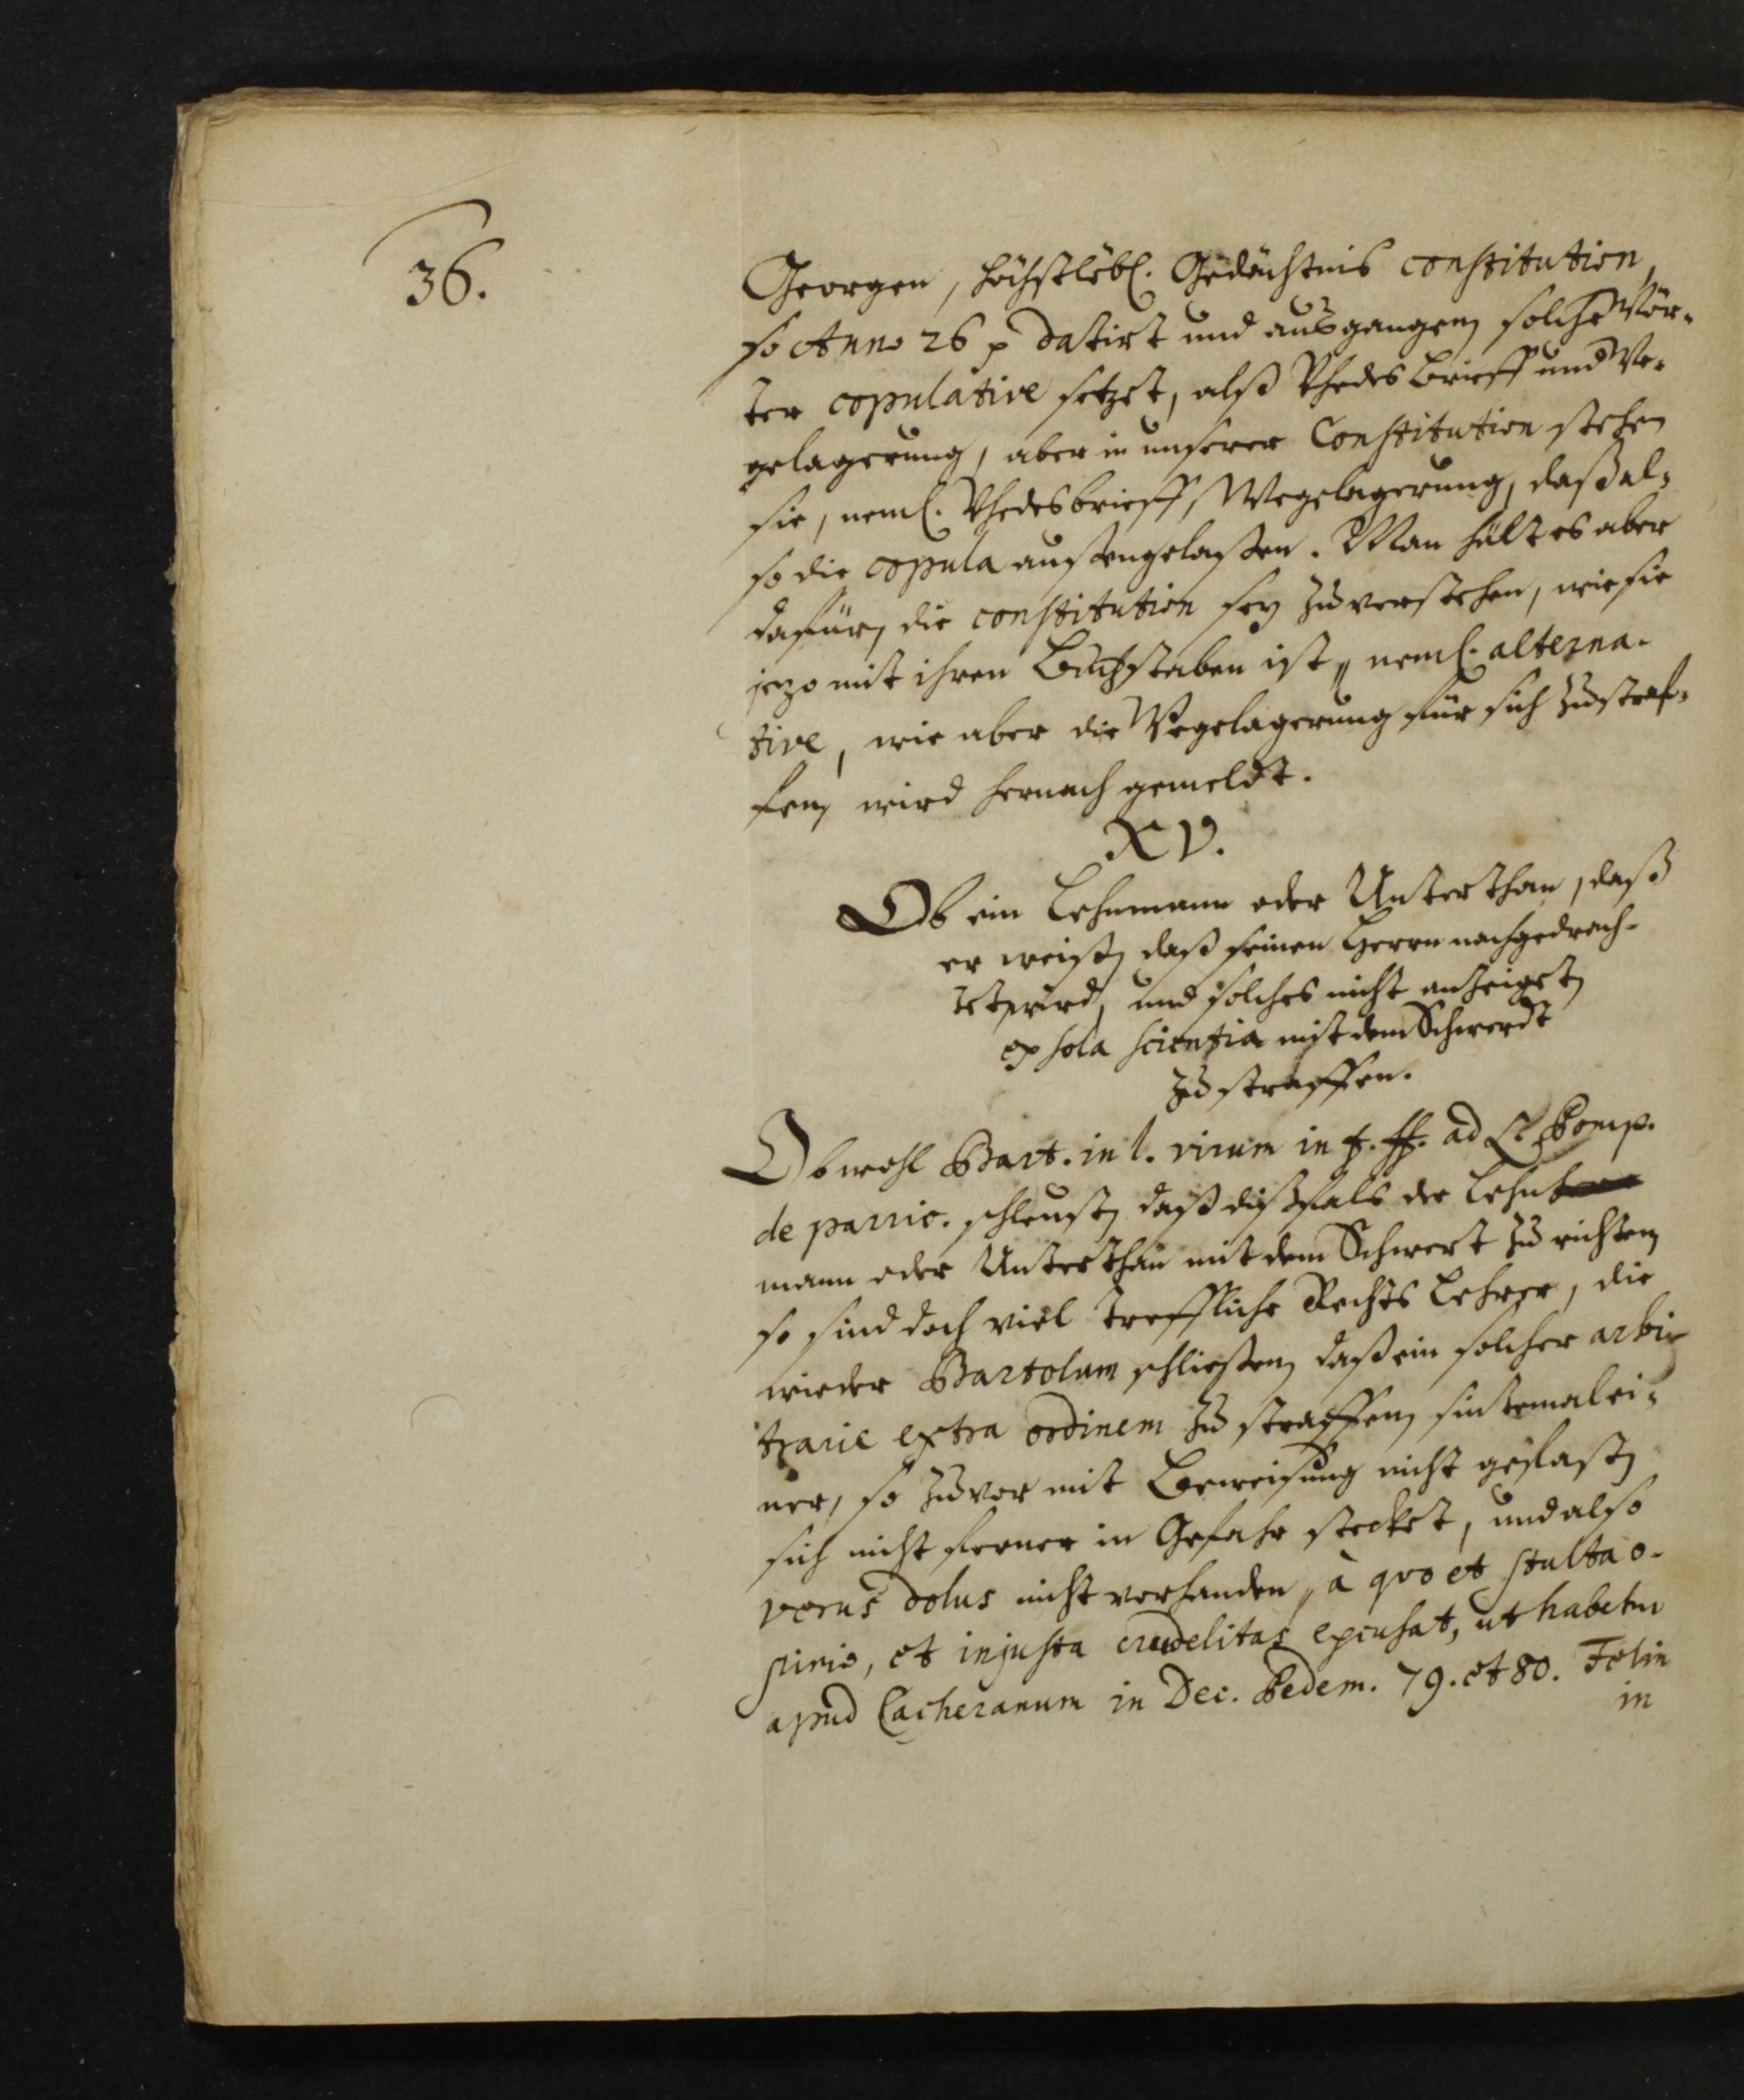 36.
Georgen, höchstlöbl. Gedächtnis constitution,
so Anno 26 p datirt und ausgangen, solche Wör-
ter copulative setzet, alß Vhedsbrieff und We-
gelagerung, aber in unserer Constitution stehen
sie, neml. Vhedesbrieff, Wegelagerung, daß al-
so die copula außengelaßen. Man hält es aber
dafür, die constitution sey zu verstehen, wie sie
jezo mit ihren Buchstaben ist, neml. alterna-
tive, wie aber die Wegelagerung für sich zu straf-
fen, wird hernach gemeldt.
XV.
Ob ein Lehnmann oder Unterthan, daß
er weiß, daß seinen Herrn nachgedrach-
tet wird, und solches nicht anzeiget,
ex sola scientia mit dem Schwerdt
zu straffen.
Obwohl Bart. in l. virum in f. ff. ad L. Pomp.
de parric. schleust, daß dißfals der Lehn
mann oder Unterthan mit dem Schwert zu richten,
so sind doch viel treffliche Rechts Lehrer, die
wieder Bartolum schließen, daß ein solcher arbi-
trarie extra ordinem zu straffen, sintemal ei-
ner, so zuvor mit Beweisung nicht gefast,
sich nicht ferner in Gefahr stecket, und also
verus dolus nicht vorhanden, à quo et stulta o-
pinio, et injusta crudelitas excusat, ut habetur
apud Cacheranum in Dec. Pedem. 79. et 80. Felin
in